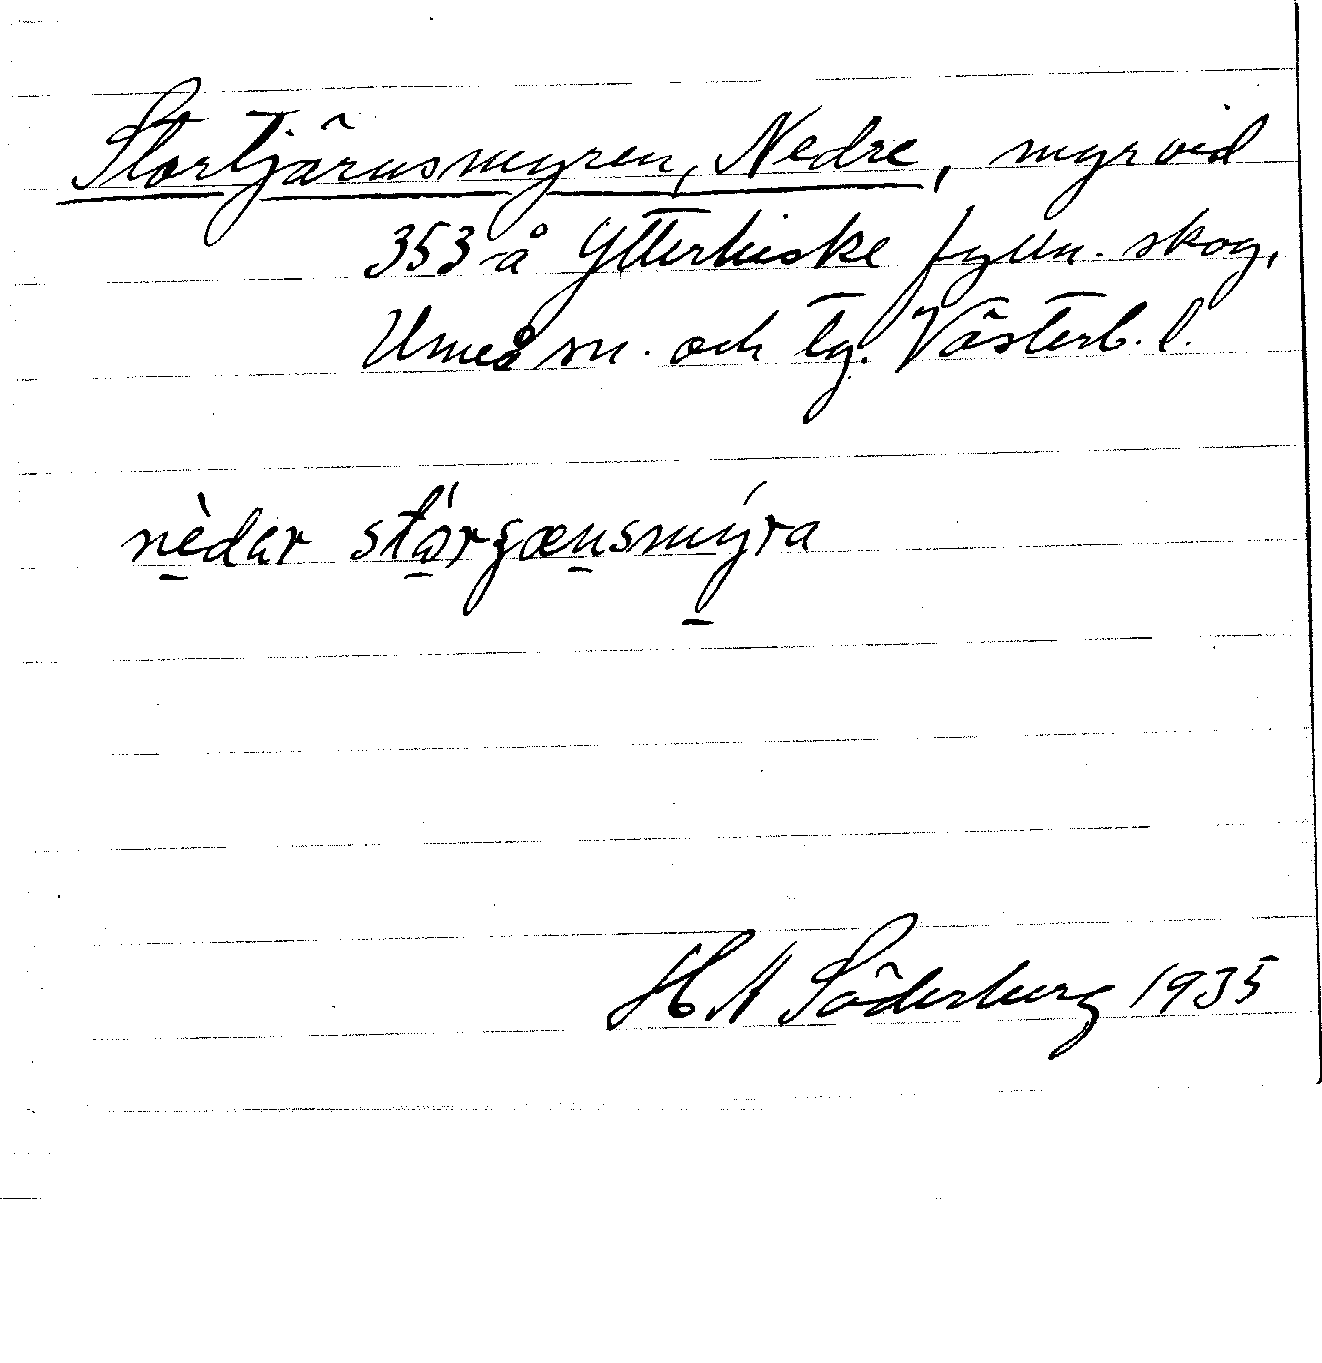 Stortjärnsmyren, Nedre, myr vid
353 å Ytterhiske fylln. skog,
Umeå sn. och tg. Västerb. l.
nèdar stórgænsmýra
H A Söderberg 1935